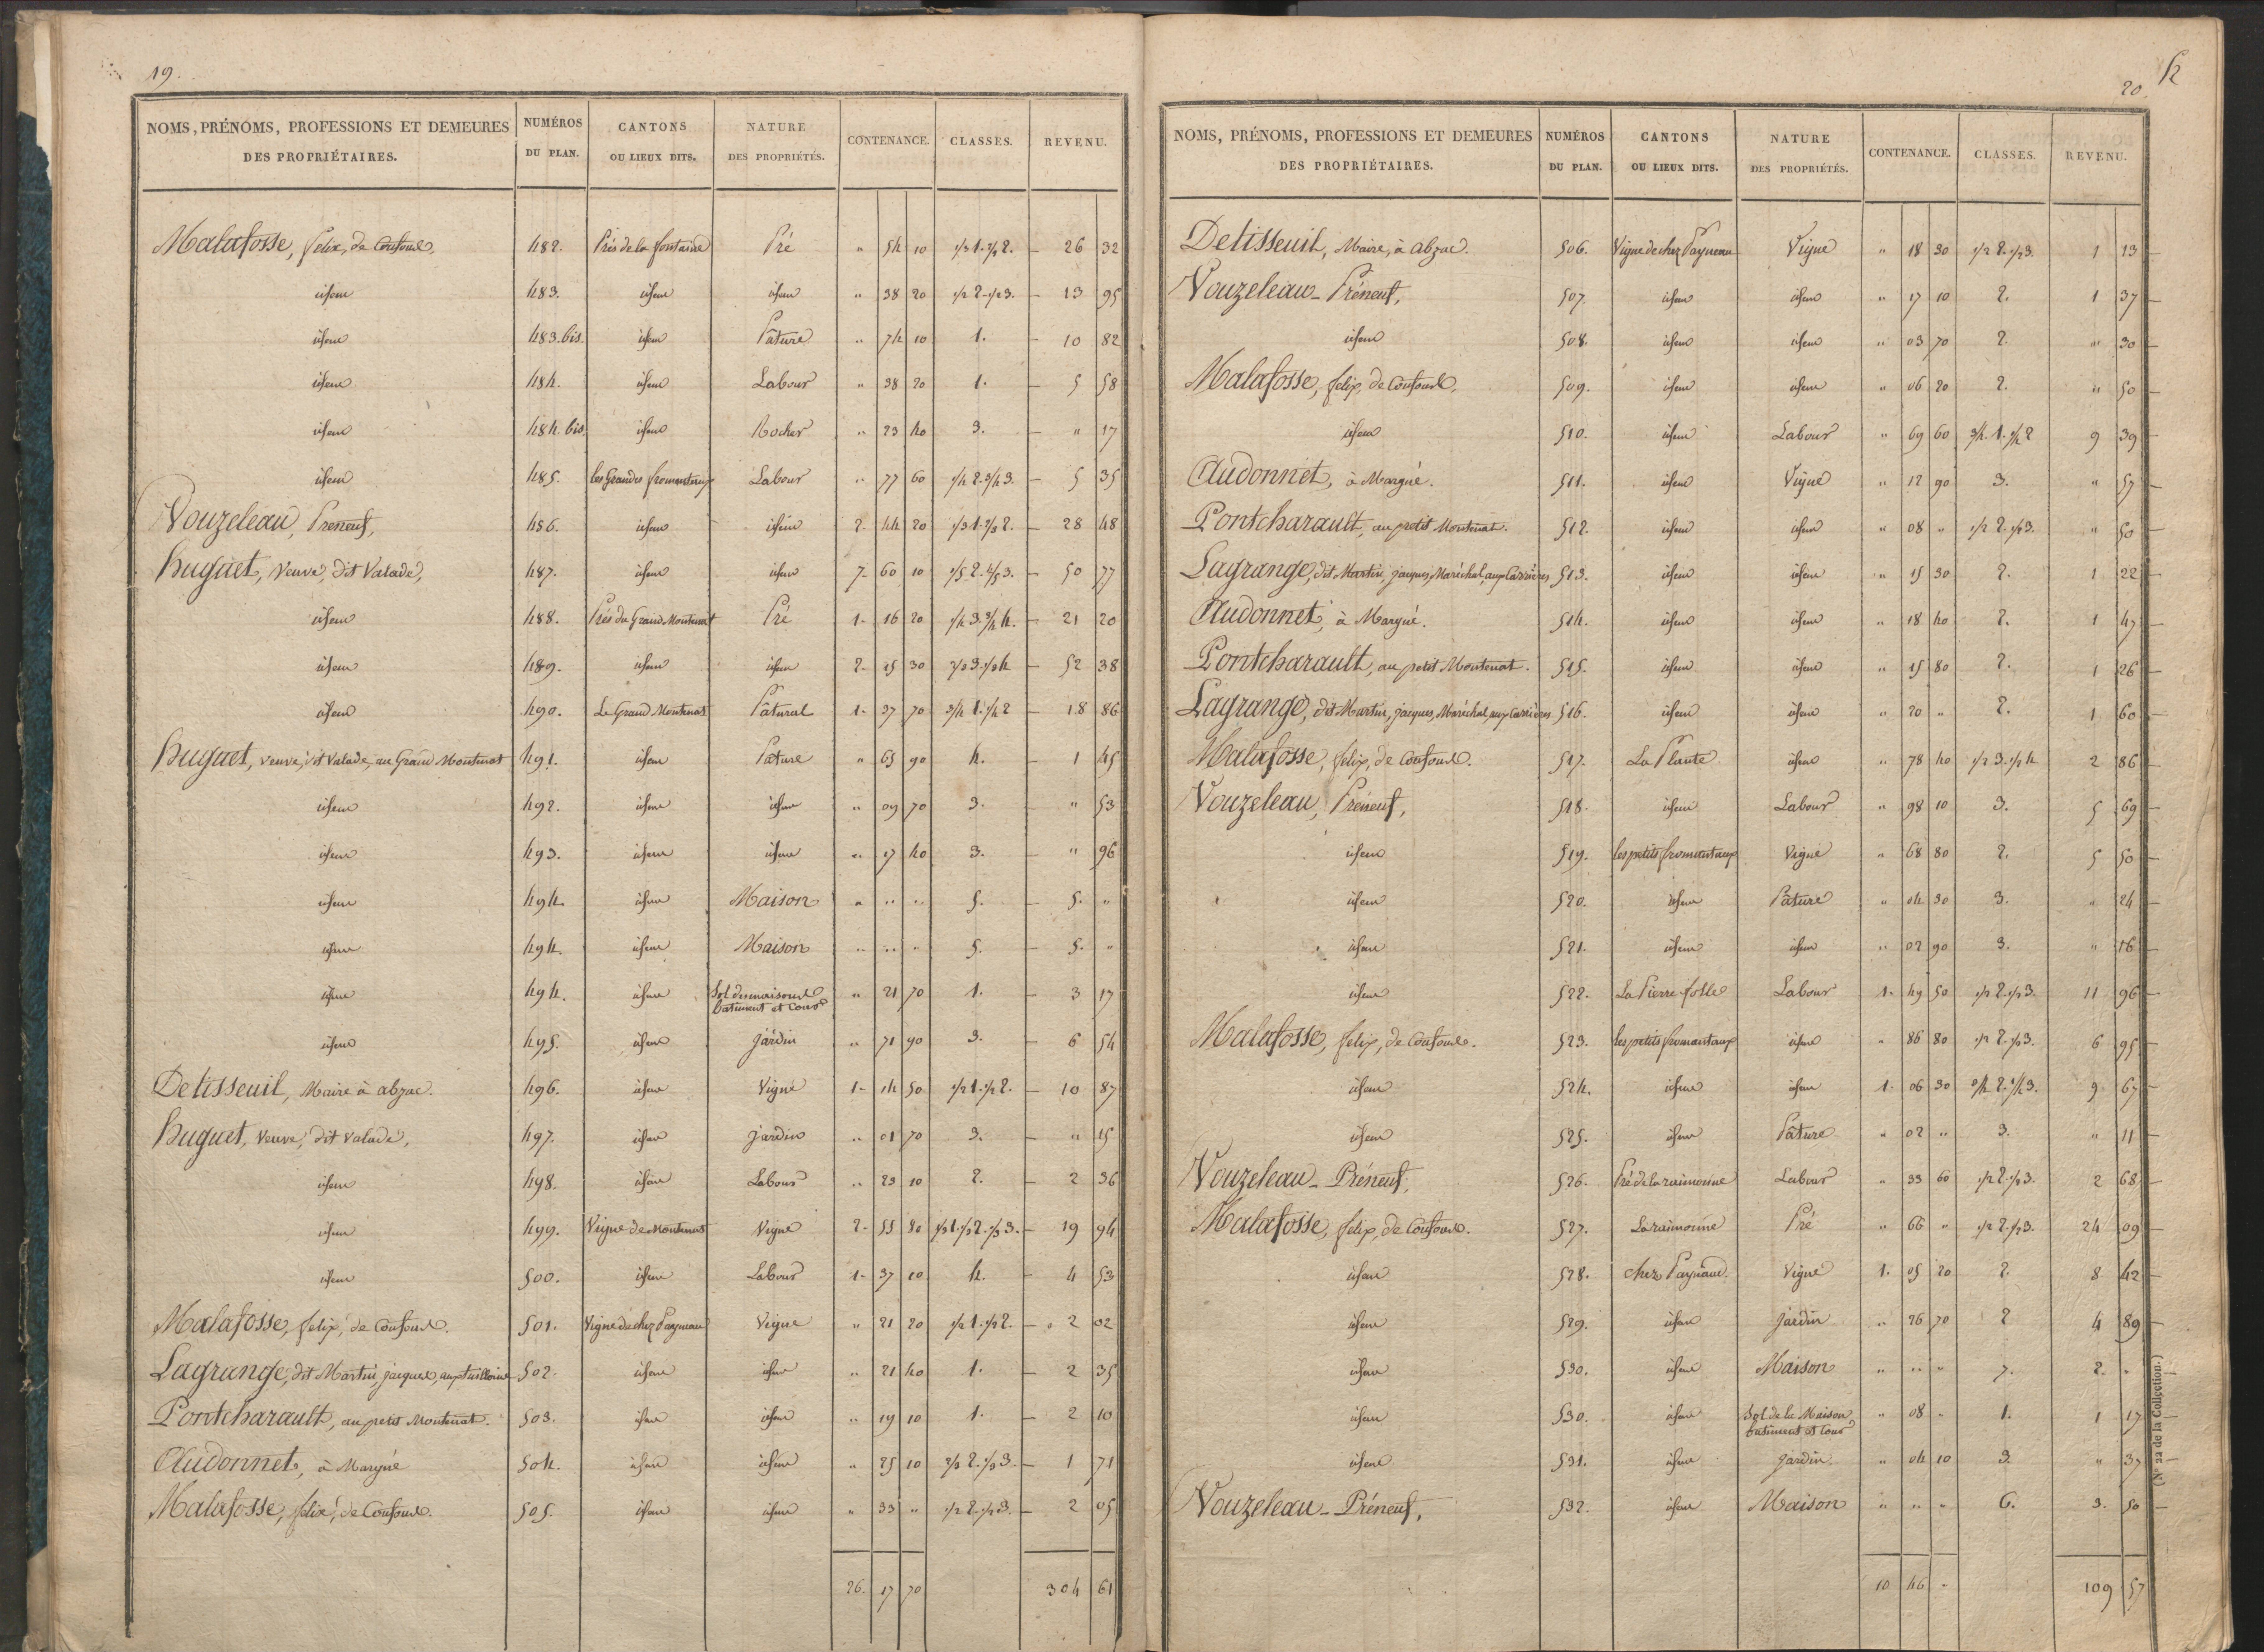 19.
NOMS, PRÉNOMS, PROFESSIONS ET DEMEURES DES PROPRIÉTAIRES. NUMÉROS DU PLAN. CANTONS OU LIEUX DITS. NATURE DES PROPRIÉTÉS. CONTENANCE. CLASSES. REVENU.
Malafosse, felix, de 482. Prés de la fontaine Pré " 54 10 1/3 1. 2/3 2. 26 32
idem 483. idem idem " 38 20 1/2 2. 1/2 3. 13 95
idem 483. bis. idem Pâture " 74 10 1. 10 82
idem 484. idem Labour " 38 20 1. 5 58
idem 484. bis. idem Rocher " 23 40 3. " 17
idem 485. les Grandes fromentaux Labour " 77 60 1/4 2. 3/4 3. 5 35
Vouzeleau, Preneuf, 486. idem idem 2. 44 20 1/3 1. 2/3 2. 28 48
huguet, veuve, dit Valade, 487. idem idem 7. 60 10 1/5 2. 4/5 3. 50 77
idem 488. Prés du Grand Montenat Pré 1. 16 20 1/4 3. 3/4 4. 21 20
idem 489. idem idem 2. 25 30 2/3 3. 1/3 4 52 38
idem 490. Le Grand Montenat Pâtural 1. 37 70 3/4 1. 1/4 2 18 86
huguet, veuve, dit Valade, au Grand Montenat 491. idem Pature " 65 90 4. 1 45
idem 492. idem idem " 09 70 3. " 53
idem 493. idem idem " 17 40 3. " 96
idem 494. idem Maison " " " 5. 5. "
idem 494. idem Maison " " " 5. 5. "
idem 494. idem Sol des maisons batiment et Cour " 21 70 1. 3 17
idem 495. idem jardin " 71 90 3. 6 54
Detisseuil, Maire à abzac. 496. idem Vigne 1. 14 50 1/2 1. 1/2 2. 10 87
huguet, veuve, dit valade, 497. idem jardin " 01 70 3. " 15
idem 498. idem Labour " 23 10 2. 2 36
idem 499. Vigne de Montenat Vigne 2. 55 80 1/3 1. 1/3 2. 1/3 3. 19 94
idem 500. idem Labour 1. 37 10 4. 4 53
Malafosse, felix, de 501. Vigne de chez Payneau Vigne " 21 20 1/2 1. 1/2 2. 2 02
Lagrange, dit Martin, jacques, 502. idem idem " 21 40 1. 2 35
Pontcharault, au petit Montenat. 503. idem idem " 19 10 1. 2 10
Audonnet, à Margné 504. idem idem " 25 10 2/3 2. 1/3 3. 1 71
Malafosse, félix, de 505. idem idem " 33 " 1/2 2. 1/2 3. 2 05
26. 17 70 304 61
20.
NOMS, PRÉNOMS, PROFESSIONS ET DEMEURES DES PROPRIÉTAIRES. NUMÉROS DU PLAN. CANTONS OU LIEUX DITS. NATURE DES PROPRIÉTÉS. CONTENANCE. CLASSES. REVENU.
Detisseuil, Maire, à abzac. 506. Vigne de chez Payneau Vigne " 18 30 1/2 2. 1/2 3. 1 13
Vouzeleau-Préneuf, 507. idem idem " 17 10 2. 1 37
idem 508. idem idem " 03 70 2. " 30
Malafosse, felix, de 509. idem idem " 06 20 2. " 50
idem 510. idem Labour " 69 60 3/4. 1. 1/4 2 9 39
Audonnet, à Margné. 511. idem Vigne " 12 90 3. " 57
Pontcharault, au petit Montenat. 512. idem idem " 08 " 1/2 2. 1/2 3. " 50
Lagrange, dit Martin, jacques, Maréchal, aux Carrières 513. idem idem " 15 30 2. 1 22
Audonnet, à Margné. 514. idem idem " 18 40 2. 1 47
Pontcharault, au petit Montenat. 515. idem idem " 15 80 2. 1 26
Lagrange, dit Martin, jacques, Maréchal, aux Carrières 516. idem idem " 20 " 2. 1 60
Malafosse, felix, de 517. La Plante idem " 78 40 1/2 3. 1/2 4 2 86
Vouzeleau, Préneuf, 518. idem Labour " 98 10 3. 5 69
idem 519. les petits fromentaux Vigne " 68 80 2. 5 50
idem 520. idem Pâture " 04 30 3. " 24
idem 521. idem idem " 02 90 3. " 16
idem 522. La Pierre folle Labour 1. 49 50 1/2 2. 1/2 3. 11 96
Malafosse, felix, de 523. les petits fromantaux idem " 86 80 1/2 2. 1/2 3. 6 95
idem 524. idem idem 1. 06 30 3/4 2. 1/4 3. 9 67
idem 525. idem Pâture " 02 " 3. " 11
Vouzeleau-Préneuf, 526. Pré de la raimonne Labour " 33 60 1/2 2. 1/2 3. 2 68
Malafosse, felix, de 527. La raimonne Pré " 66 " 1/2 2. 1/2 3. 24 09
idem 528. chez Paynaud. Vigne 1. 05 20 2. 8 42
idem 529. idem jardin " 26 70 2 4 89
idem 530. idem Maison " " " 7. 2. "
idem 530. idem Sol de la Maison, batiment et Cour " 08 " 1. 1 17
idem 531. idem jardin " 04 10 3. " 37
Vouzeleau-Préneuf, 532. idem Maison " " " 6. 3. 50
10 46 " 109 57
(N° 22 de la Collection.)